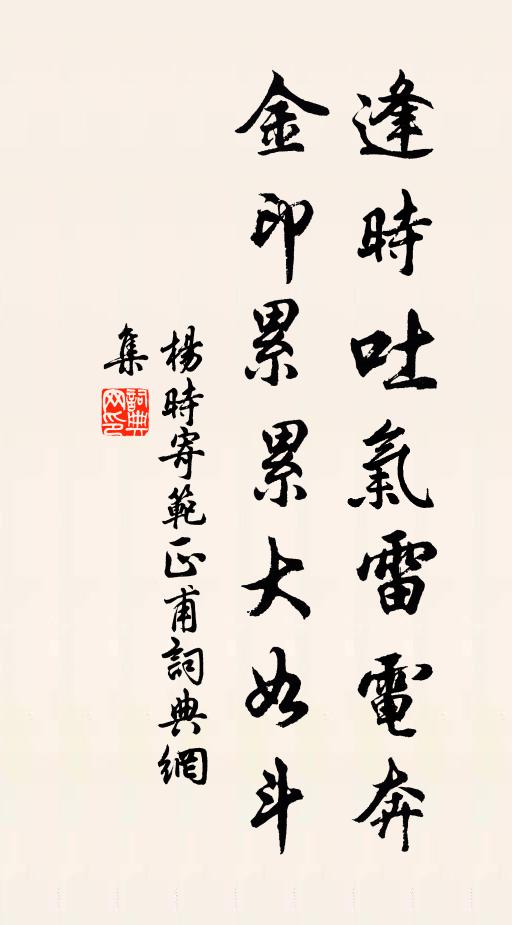 逢時吐氣雷電奔
金印累累大如斗
楊時寄範正甫詞典網
集
詞典
網印